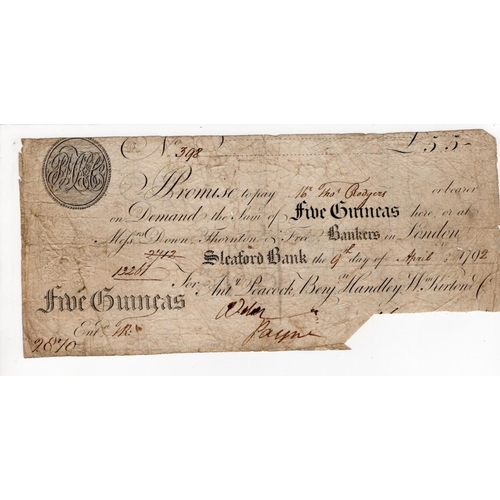 No 398 £ 5 5 -
I Promise to pay Mr. Thos. Rodgers or bearer
on Demand the Sum of Five Guineas here or at
Messrs Down, Thornton & Free Bankers in London
2742
Sleaford Bank the 9th day of April 1792
13261
For Anty. Peacock, Benjn. Handley, Wm. Kirton & Co
Five Guineas
Payne
Entd.
2870